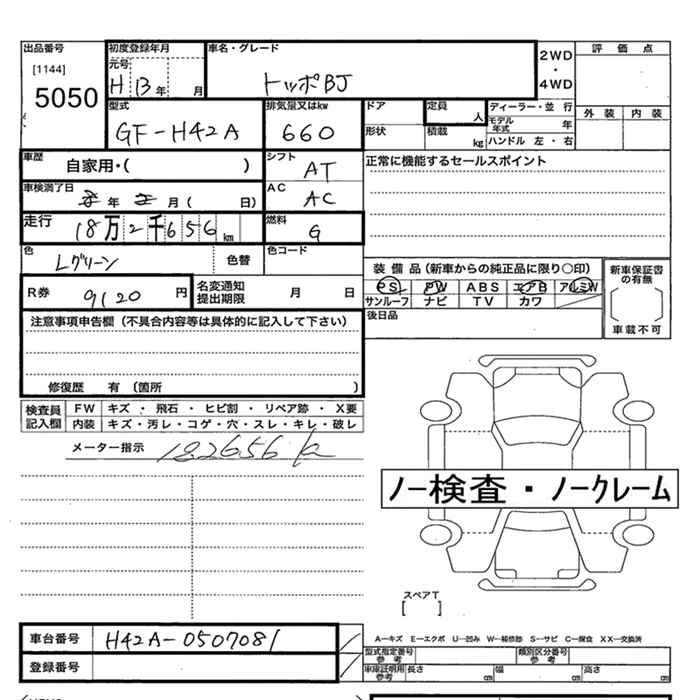 出品番号 初度登録年月 車名・グレード 2WD 評価点
[1144] 元号
5050 H 13 年 月 トッポBJ ・ 4WD
型式 排気量又はkw ドア 定員 人 ディーラー・並 行 外装 内装
GF-H42A 660 形状 積載 kg モデル年式 年
ハンドル 左・右
車歴 自家用・( ) シフト AT 正常に機能するセールスポイント
車検満了日 年 月 ( 日) AC AC
走行 18万2千656 km 燃料 G
色 Lグリーン 色替 色コード
装備品(新車からの純正品に限り○印) 新車保証書の有無
R券 9120 円 名変通知提出期限 月 日 PS PW ABS エアB アルミW
サンルーフ ナビ TV カワ 車載不可
注意事項申告欄(不具合内容等は具体的に記入して下さい) 後日品
修復歴 有 (箇所 )
検査員記入欄 FW キズ・飛石・ヒビ割・リペア跡・X要
内装 キズ・汚レ・コゲ・穴・スレ・キレ・破レ
メーター指示 182656 K
ノー検査・ノークレーム
スペアT
[ ]
車台番号 H42A-0507081 A―キズ E―エクボ U―凹み W―補修跡 S―サビ C―腐食 XX―交換済
登録番号 型式指定番号 参考 類別区分番号 参考
車庫証明用 参考 長さ cm 幅 cm 高さ cm